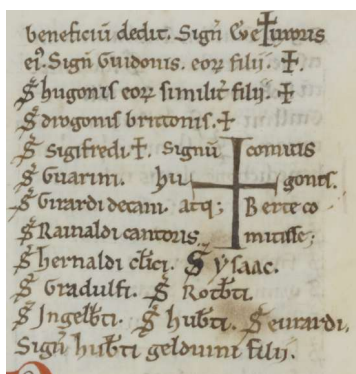 beneficiū dedit. Signū Ŵe✝uxoris
eiꝰ. Signū Guidonis. eoꝝ filij. ✝.
S̃ hugonis eoꝝ similit̄ filij. ✝
S̃ drogonis brittonis. ✝
S̃ Sigifredi ✝. Signū comitis
S̃ Guarini. hu✝gonis.
S̃ Girardi decani. atq; Berte co
S̃ Rainaldi cantoris mitisse;
S̃ hernaldi cl̄ici. S̃ ẏsaac.
S̃ Gradulfi. S̃ Rotb̄ti.
S̃ Ingelb̄ti. S̃ hub̄ti. S̃ eurardi,
Signū hub̄ti gelduini filij.